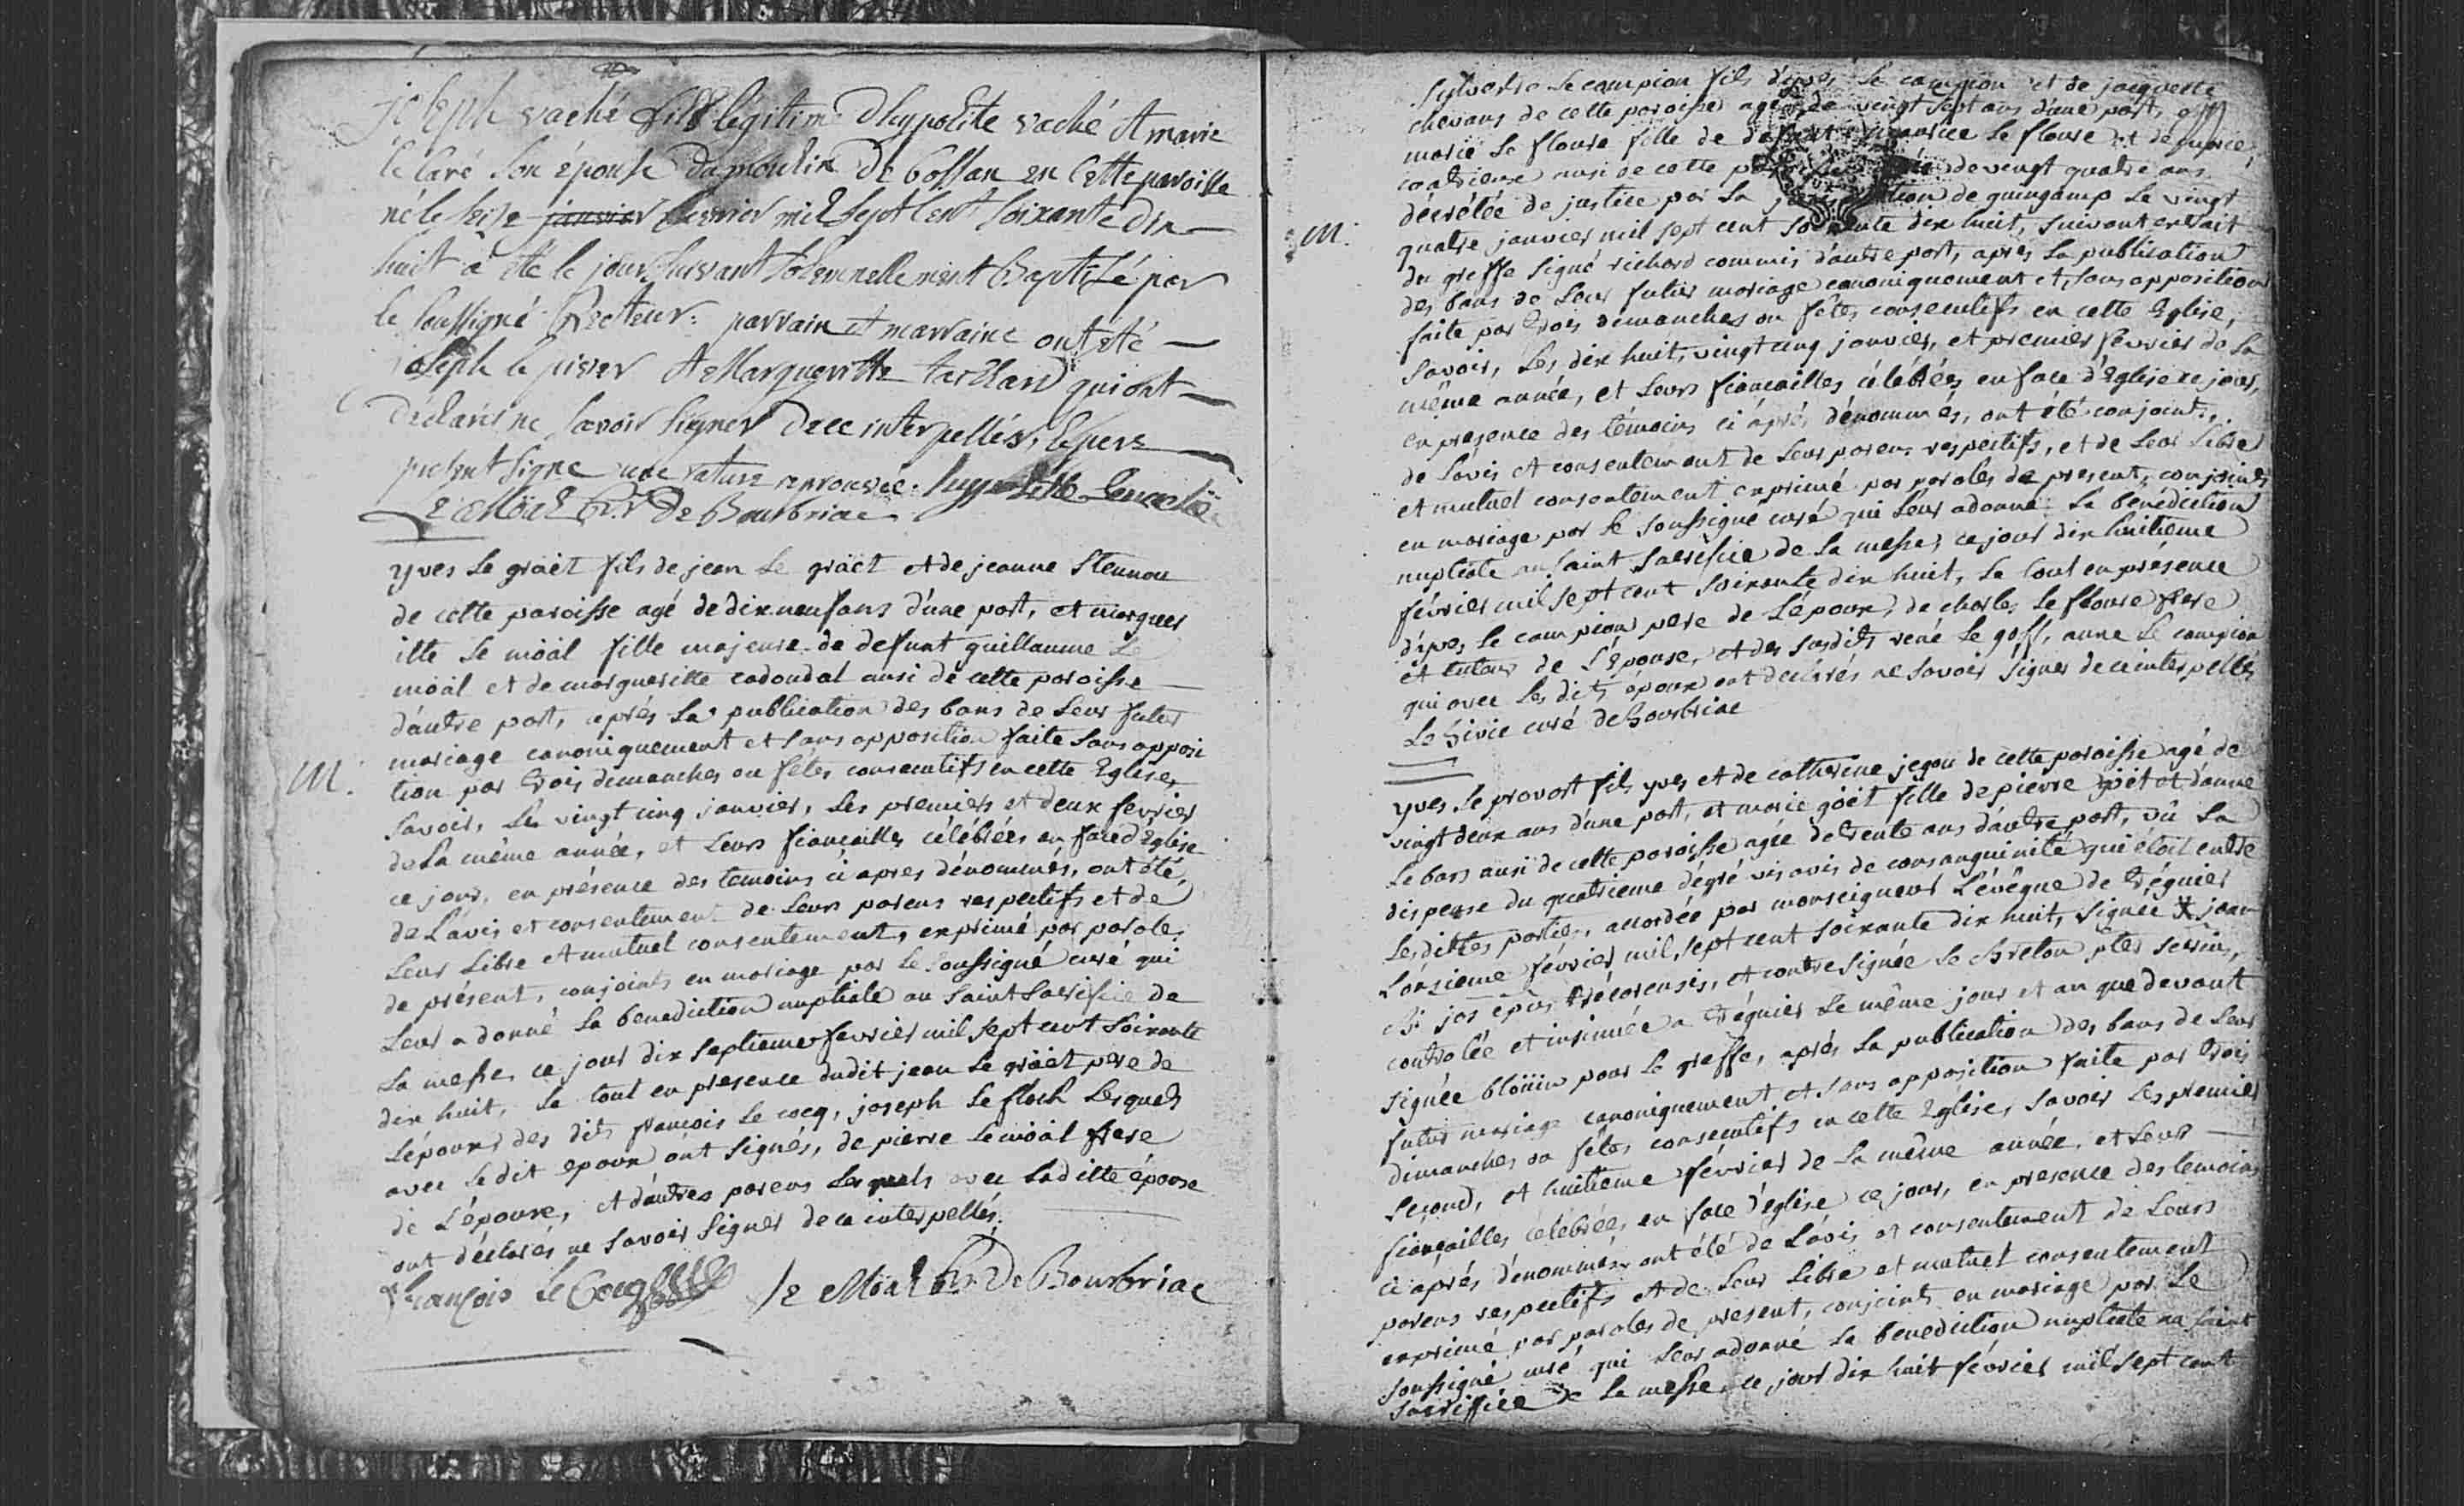 joseph vaché fils légitime d'hypolite vaché et marie
le caré son épouse du moulin de en cette paroisse
né le seize janvier fevrier mil sept cent soixante dix
huit a été le jour suivant solemnellement baptisé par
le soussigné Recteur: parrain et marraine ont été
joseph le et Margueritte qui ont
déclarés ne savoir signer de ce interpellés, le pere
present signe une rature aprouvée. hyppolitte
Le Moal Rr De Bourbriac
yves le graët fils de jean le graët et de jeanne stennou
de cette paroisse agé de dix neuf ans d'une part, et marguer
itte le moal fille majeure de defunt guillaume Le
moal et de margueritte cadoudal ausi de cette paroisse
d'autre part, aprés la publication des bans de leur futur
mariage canoniquement et sans opposition faite sans opposi
M. tion par trois dimanches ou fétes consecutifs en cette Eglise,
savoir, les vingt cinq janvier, les premiers et deux fevrier
de la même année, et leurs fiançailles célébrées en face d'Eglise
ce jour, en présence des temoins ci apres dénommés, ont été,
de l'avis et consentement de leurs parens respectifs et de
leur libre et mutuel consentement, exprimé par paroles
de présent, conjoints en mariage par le soussigné curé qui
leur a donné la benediction nuptiale au saint sacrifice de
la messe, ce jour dix septieme fevrier mil sept cent soixante
dix huit, le tout en presence dudit jean le graët pere de
l'époux, des dits françois le cocq, joseph le floch lesquels
avec le dit epoux ont signés, de pierre le moal frere
de l'épouse, et d'autres parens lesquels avec laditte épouse
ont déclarés ne savoir signer de ce interpellés.
françois le Cocq Le Moal Rr De Bourbriac
Sylvestre le campion fils d'yves le campion et de jacquette
chevans de cette paroisse agé de vingt sept ans d'une part, et
marie le floure fille de defunt maurice le floure et de
aussi de cette de vingt quatre ans
décrétée de justice par la de guingamp le vingt
M. quatre janvier mil sept cent soixante dix huit, suivant extrait
du greffe signé richard commis d'autre part, après la publication
des bans de leur futur mariage canoniquement et sans opposition
faite par trois dimanches ou fêtes consecutifs en cette Eglise,
savoir, les dix huit, vingt cinq janvier, et premier fevrier de la
même année, et leurs fiançailles célébrées en face d'Eglise ce jour,
en presence des témoins ci aprés dénommés, ont été conjoints,
de l'avis et consentement de leurs parens respectifs, et de leur libre
et mutuel consentement exprimé par paroles de present, conjoints
en mariage par le soussigné curé qui leur a donné la bénédiction
nuptiale au saint sacrifice de la messe, ce jour dix huitieme
février mil sept cent soixante dix huit, le tout en présence
d'yves le campion pere de l'époux, de charles le floure frere
et tuteur de l'épouse, et des susdits rené le goff, anne le campion
qui avec les dits époux ont déclarés ne savoir signer de ce interpellés
Le Sivic curé de Bourbriac
yves le provost fils yves et de catherine jegou de cette paroisse agé de
vingt deux ans d'une part, et marie goët fille de pierre goët et d'anne
le bars ausi de cette paroisse agée de trente ans d'autre part, vu la
dispense du quatrieme dégré vis avis de consanguinité qui étoit entre
lesdittes parties, accordée par monseigneur l'évêque de Tréguier
l'onzieme février mil sept cent soixante dix huit, signée † joan
Bt jos epùs trecorensis, et contresignée le Breton
controlée et insinuée a Tréguier le même jour et an que devant
signée bloüin pour le greffe, aprés la publication des bans de leur
futur mariage canoniquement et sans opposition faite par trois
dimanches ou fêtes consecutifs en cette Eglise, savoir les premier
second, et huitieme février de la même année, et leurs
fiançailles célébrées en face d'église ce jour, en presence des temoins
ci aprés dénommés ont été de l'avis et consentement de leurs
parens respectifs et de leur libre et mutuel consentement
exprimé par paroles de present, conjoints en mariage par le
soussigné curé qui leur a donné la benediction nuptiale au saint
sacriffice de la messe, ce jour dix huit février mil sept cent